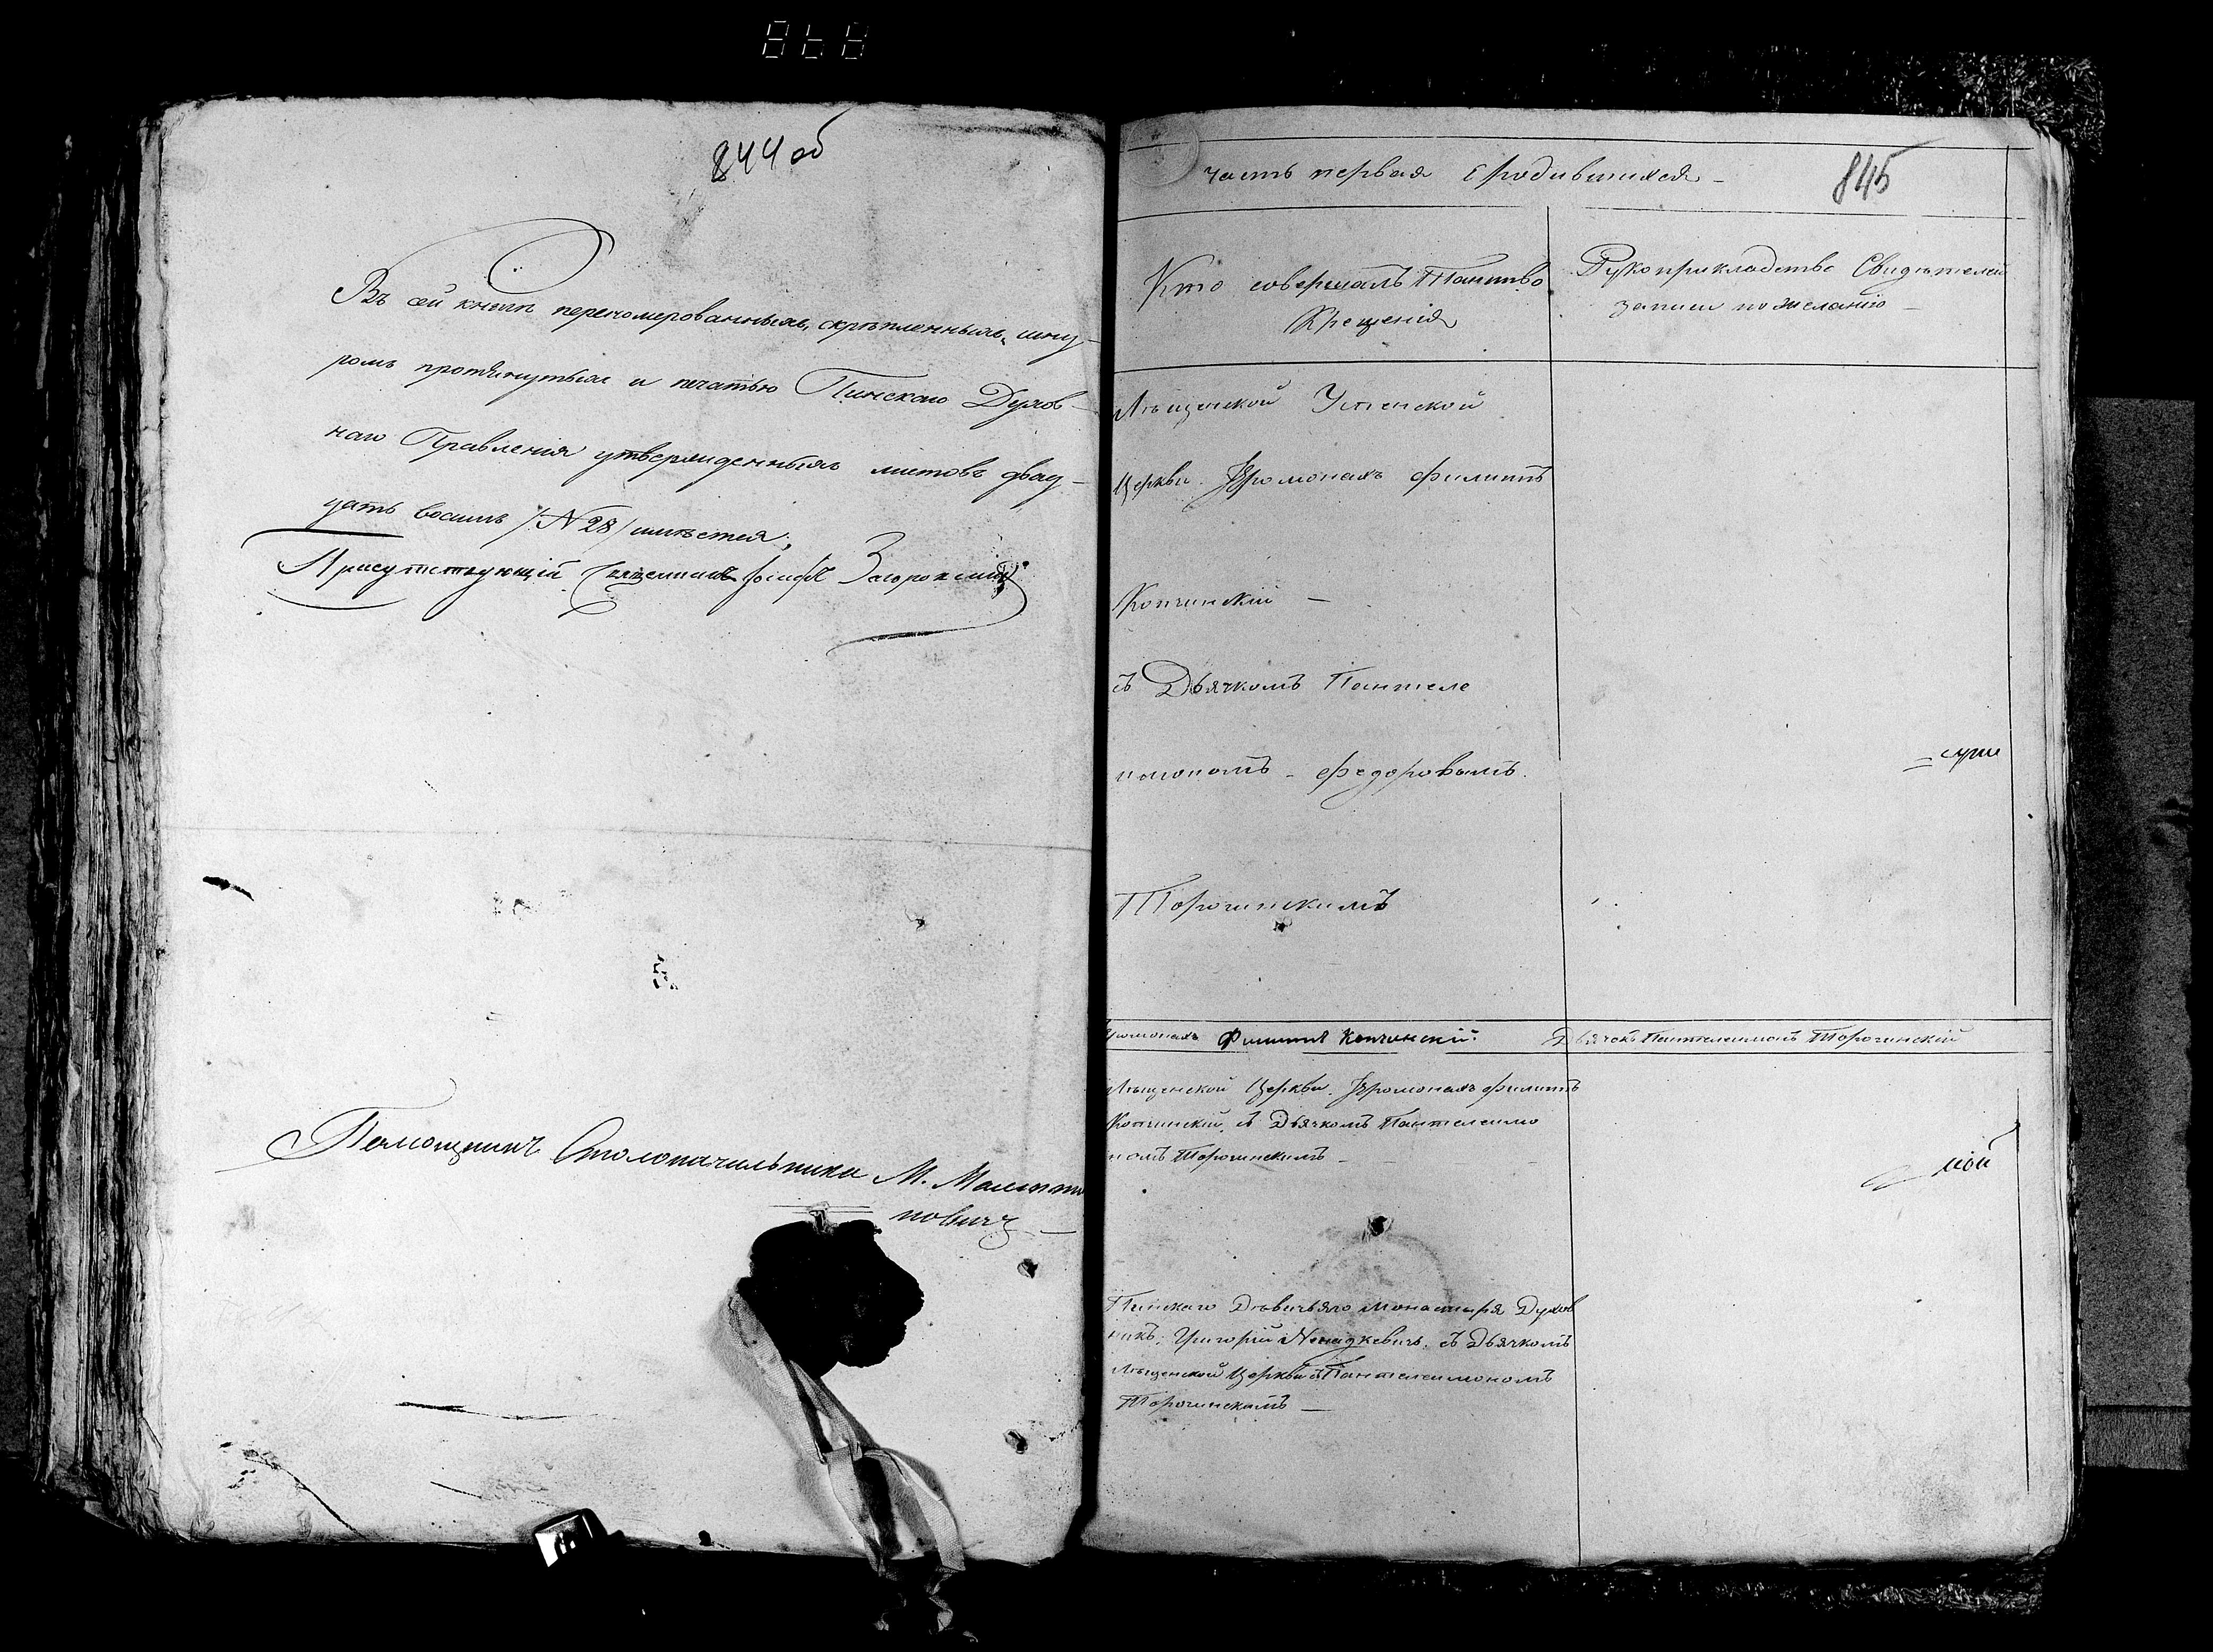 868
844 об
Въ сей книгѣ перено­мерованныхъ, скрѣпленныхъ, шну-
ромъ протянутыхъ и печатью Пинскаго Духов-
наго Правленія утвержденныхъ листовъ двад-
цать восимъ /N 28/ имѣется,
Присутствующій Священникъ Іосифъ
Помощникъ Столоначальника М.
новичъ
845
часть первая о родившихся
Кто совершалъ Таинтво
Крещенія
Рукоприкладство Свидѣтелей
записи по желанію
Лѣщенской Успенской
Церкви Іеромонахъ Филиппъ
Копчинскій
съ Дьячкомъ Пантеле
имономъ Федоровымъ
Торочинскимъ
Іеромонахъ Филиппъ Копчинскій. Дьячокъ Пантелеимонъ Торочинскій
Лѣщенской Церкви Іеромонахъ Филиппъ
Копчинскій, съ Дьячкомъ Пантелеимо
номъ Торочинскимъ
Пинскаго Дѣвичьяго монастыря Духов
никъ Григорій съ Дьячкомъ
Лѣщенской Церкви Пантелеимономъ
Торочинскимъ